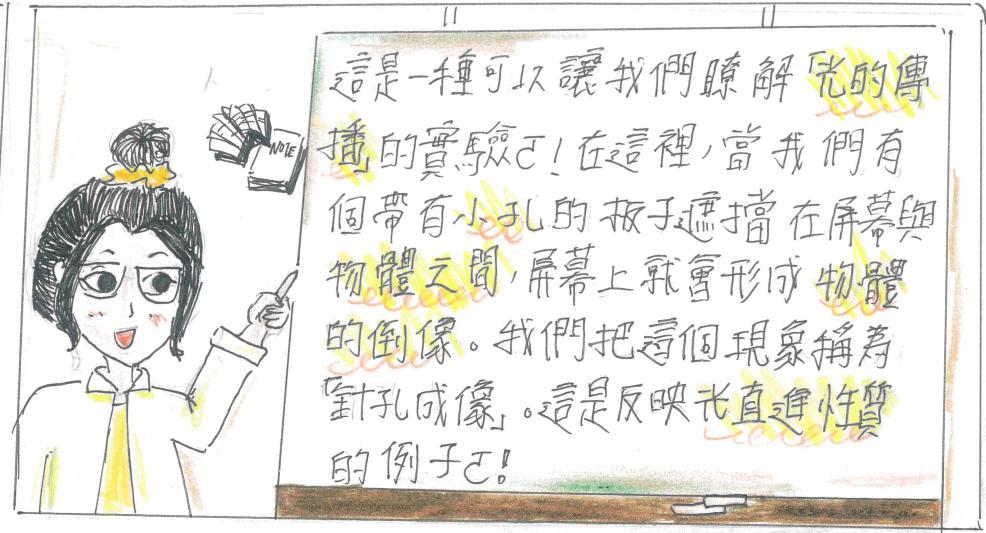 NOTE
這是一種可以讓我們瞭解「光的傳
播」的實驗ㄛ!在這裡,當我們有
個帶有小孔的板子遮擋在屏幕與
物體之間,屏幕上就會形成物體
的倒像。我們把這個現象稱為
「針孔成像」。這是反映光直進性質
的例子ㄛ!